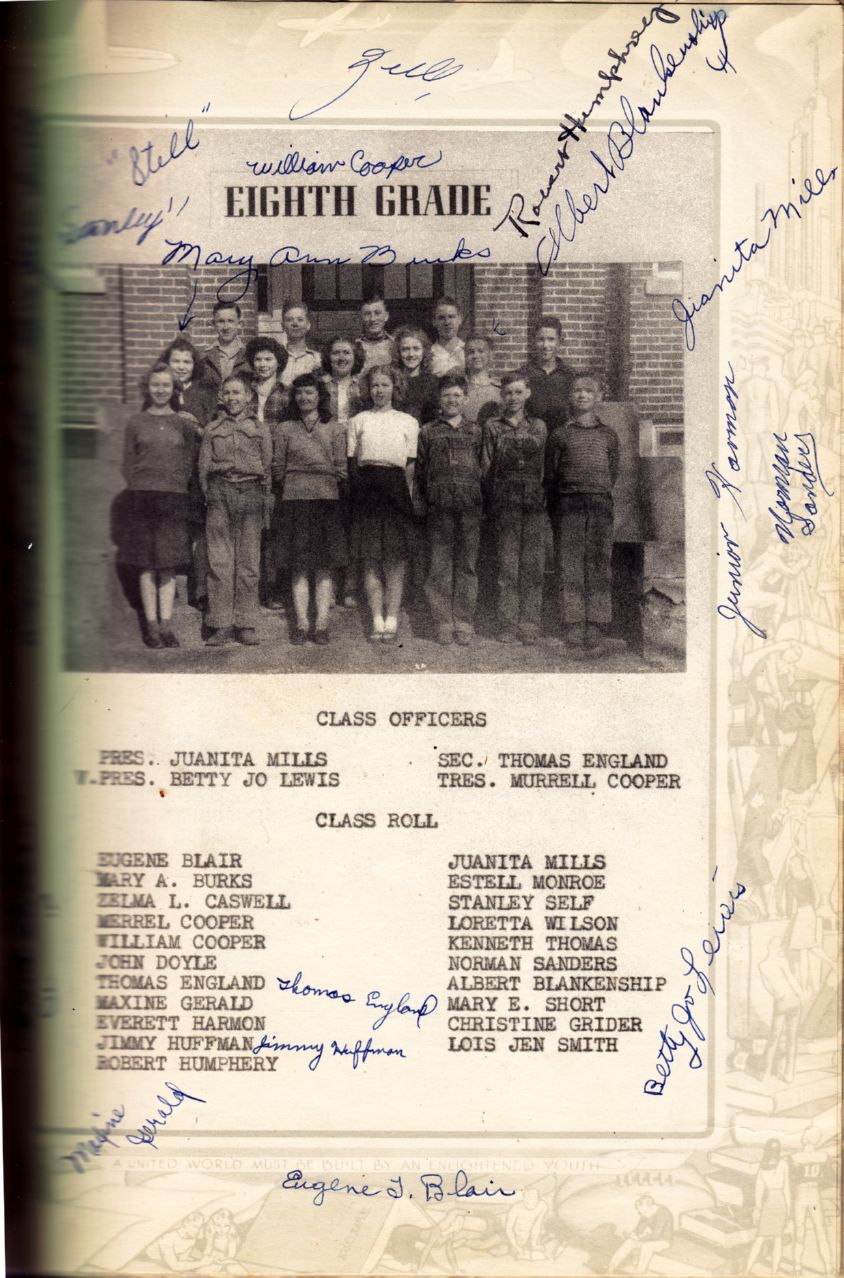 "Stell"
William Cooper
Robert Humphrey
Albert Blankenship
Stanley"
EIGHTH GRADE
Mary Ann Burks
Juanita Mills
Junior Harmon
Norman Sanders
CLASS OFFICERS
PRES. JUANITA MILLS SEC. THOMAS ENGLAND
V.PRES. BETTY JO LEWIS TRES. MURRELL COOPER
CLASS ROLL
EUGENE BLAIR JUANITA MILLS
MARY A. BURKS ESTELL MONROE
ZELMA L. CASWELL STANLEY SELF
MERREL COOPER LORETTA WILSON
WILLIAM COOPER KENNETH THOMAS
JOHN DOYLE NORMAN SANDERS
THOMAS ENGLAND Thomas England ALBERT BLANKENSHIP
MAXINE GERALD MARY E. SHORT
EVERETT HARMON CHRISTINE GRIDER
JIMMY HUFFMAN Jimmy Huffman LOIS JEN SMITH
ROBERT HUMPHERY
Betty Jo Lewis
Maxine Gerald
A UNITED WORLD MUST BE BUILT BY AN ENLIGHTENED YOUTH
Eugene T. Blair
10